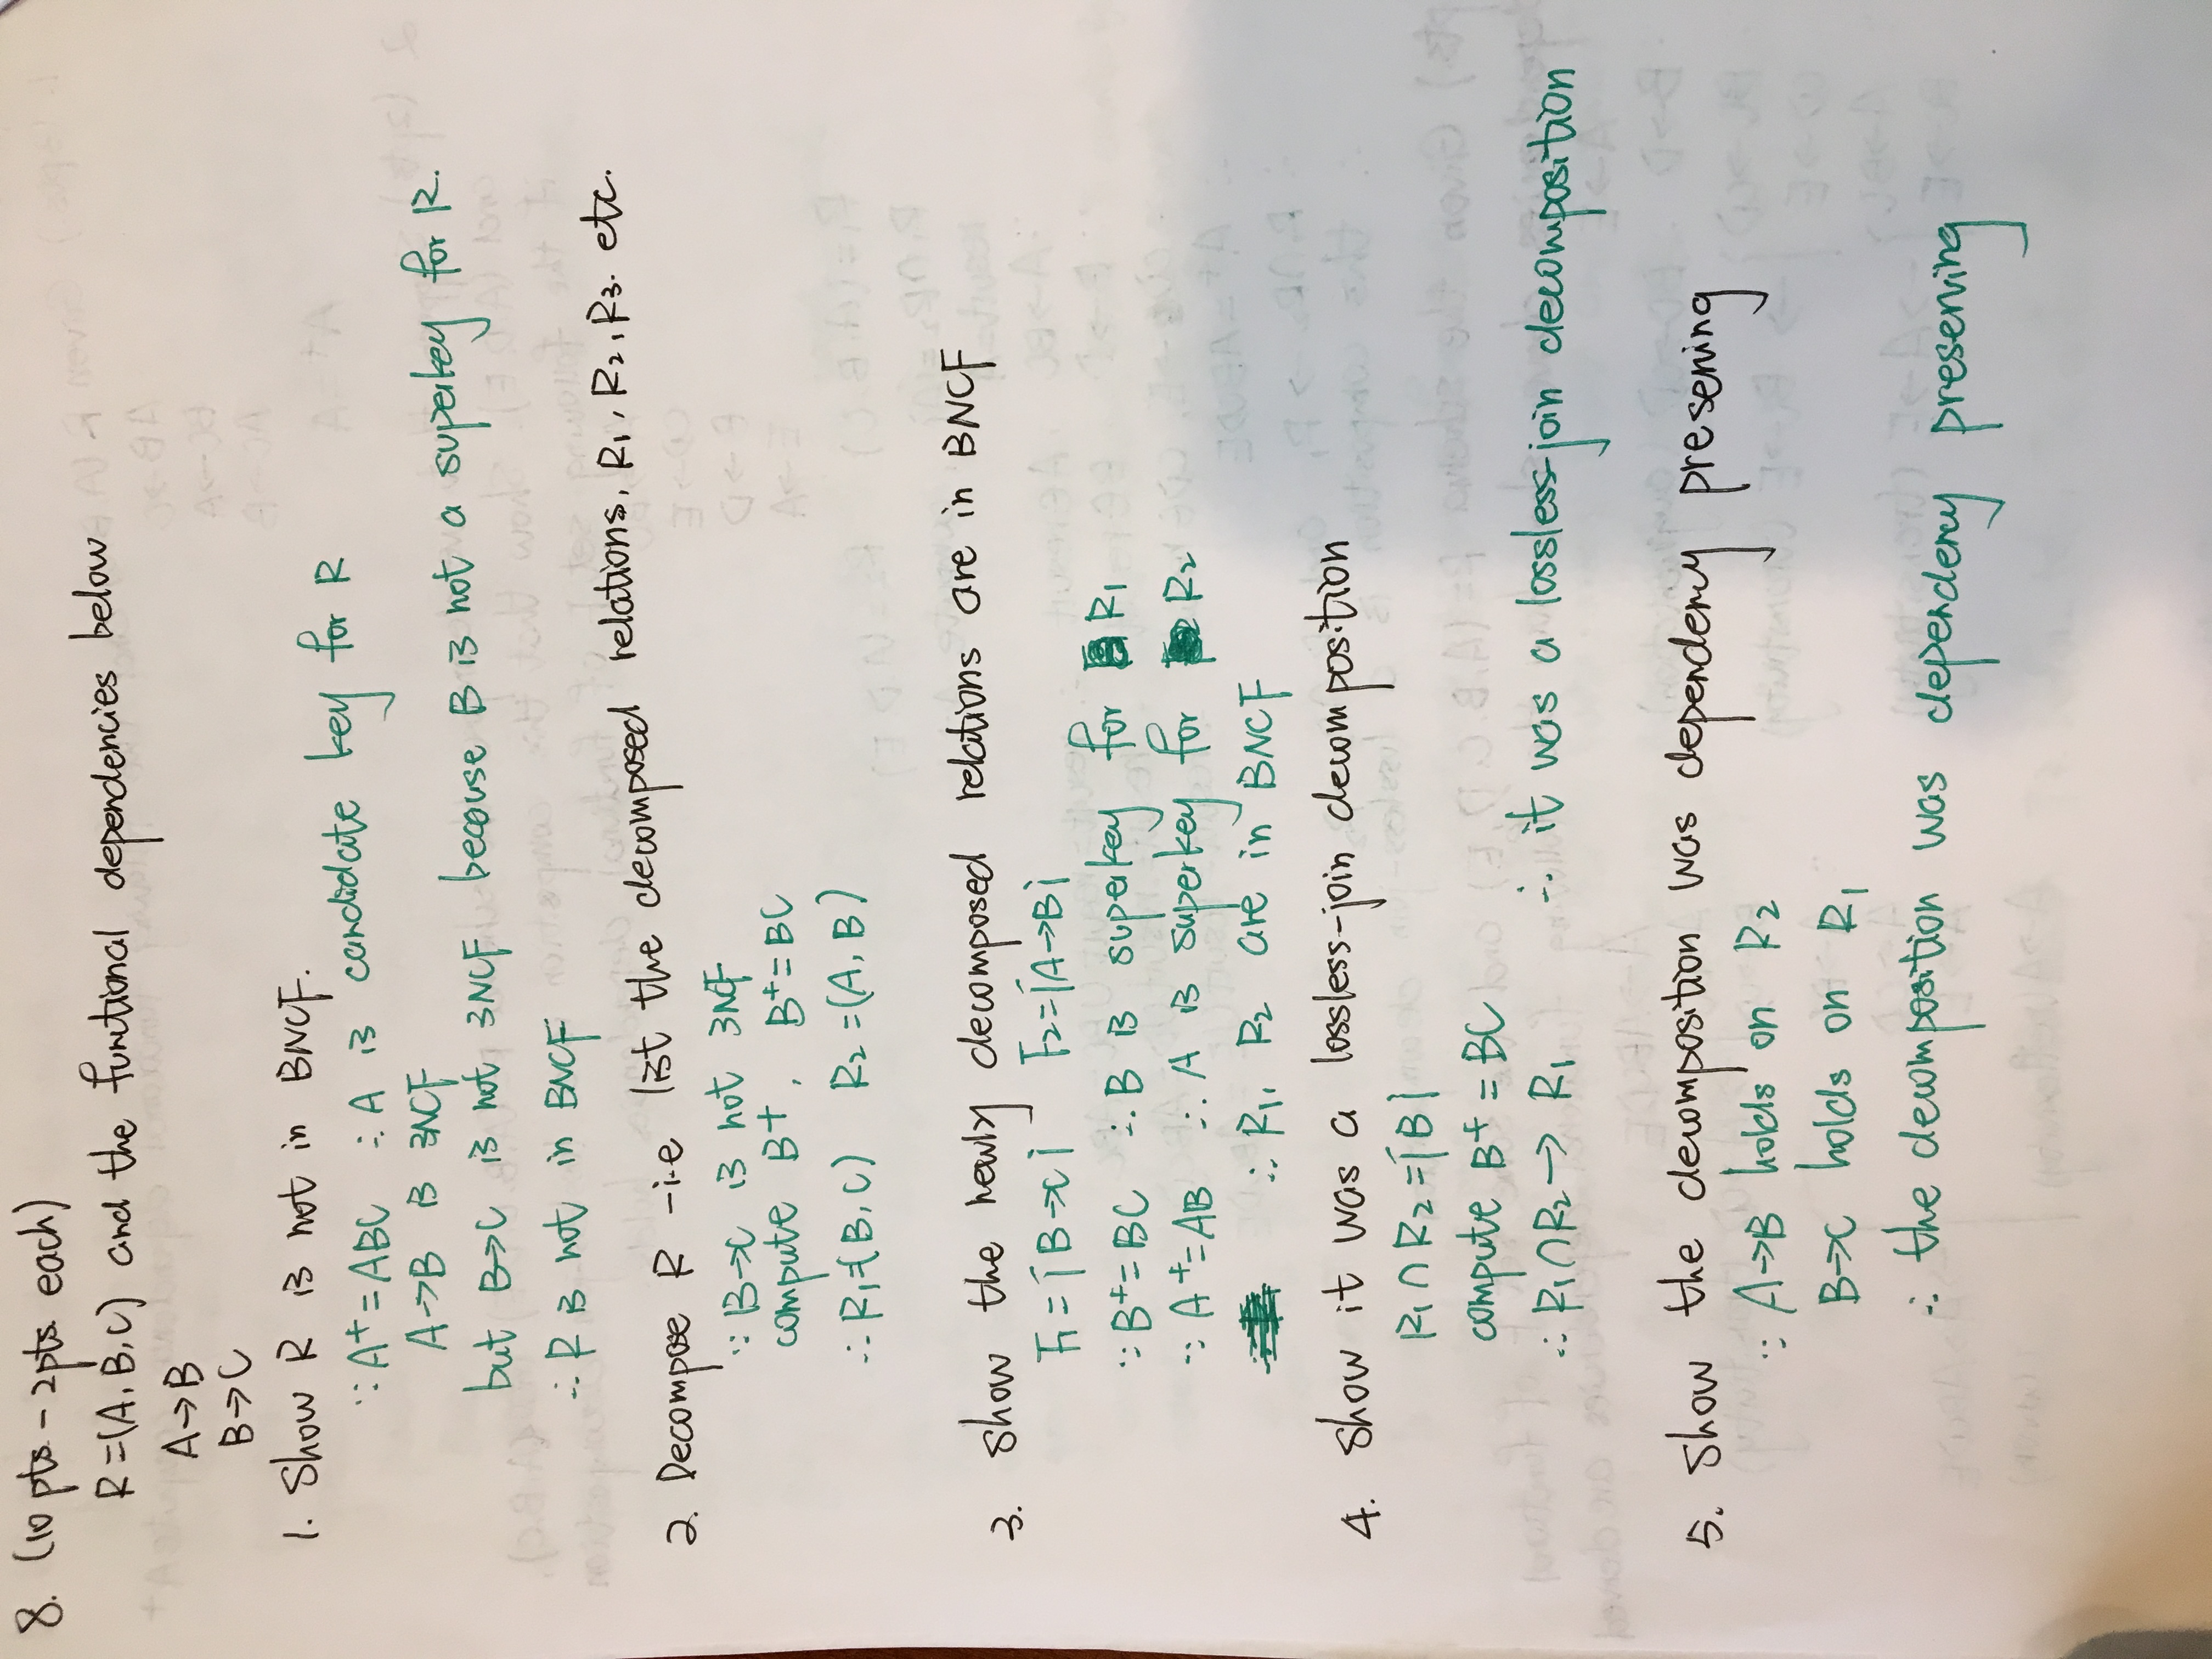 8. (10 pts - 2pts each)
R=(A, B, C) and the functional dependencies below
A→B
B→C
1. Show R is not in BNCF.
∵ A+ = ABC ∴ A is candidate key for R
A→B is 3NCF
but B→C is not 3NCF because B is not a superkey for R.
∴ R is not in BNCF
2. Decompose R -i.e list the decomposed relations, R1, R2, R3. etc.
∵ B→C is not 3NF
compute B+, B+ = BC
∴ R1=(B, C) R2=(A, B)
3. Show the newly decomposed relations are in BNCF
F1 = {B→C} F2={A→B}
∵ B+ = BC ∴ B is superkey for R1
∵ A+ = AB ∴ A is superkey for R2
∴ R1, R2 are in BNCF
4. Show it was a lossless-join decomposition
R1 ∩ R2 = {B}
compute B+ = BC
∴ R1 ∩ R2 → R1 ∴ it was a lossless-join decomposition
5. Show the decomposition was dependency preserving
∵ A→B holds on R2
B→C holds on R1
∴ the decomposition was dependency preserving